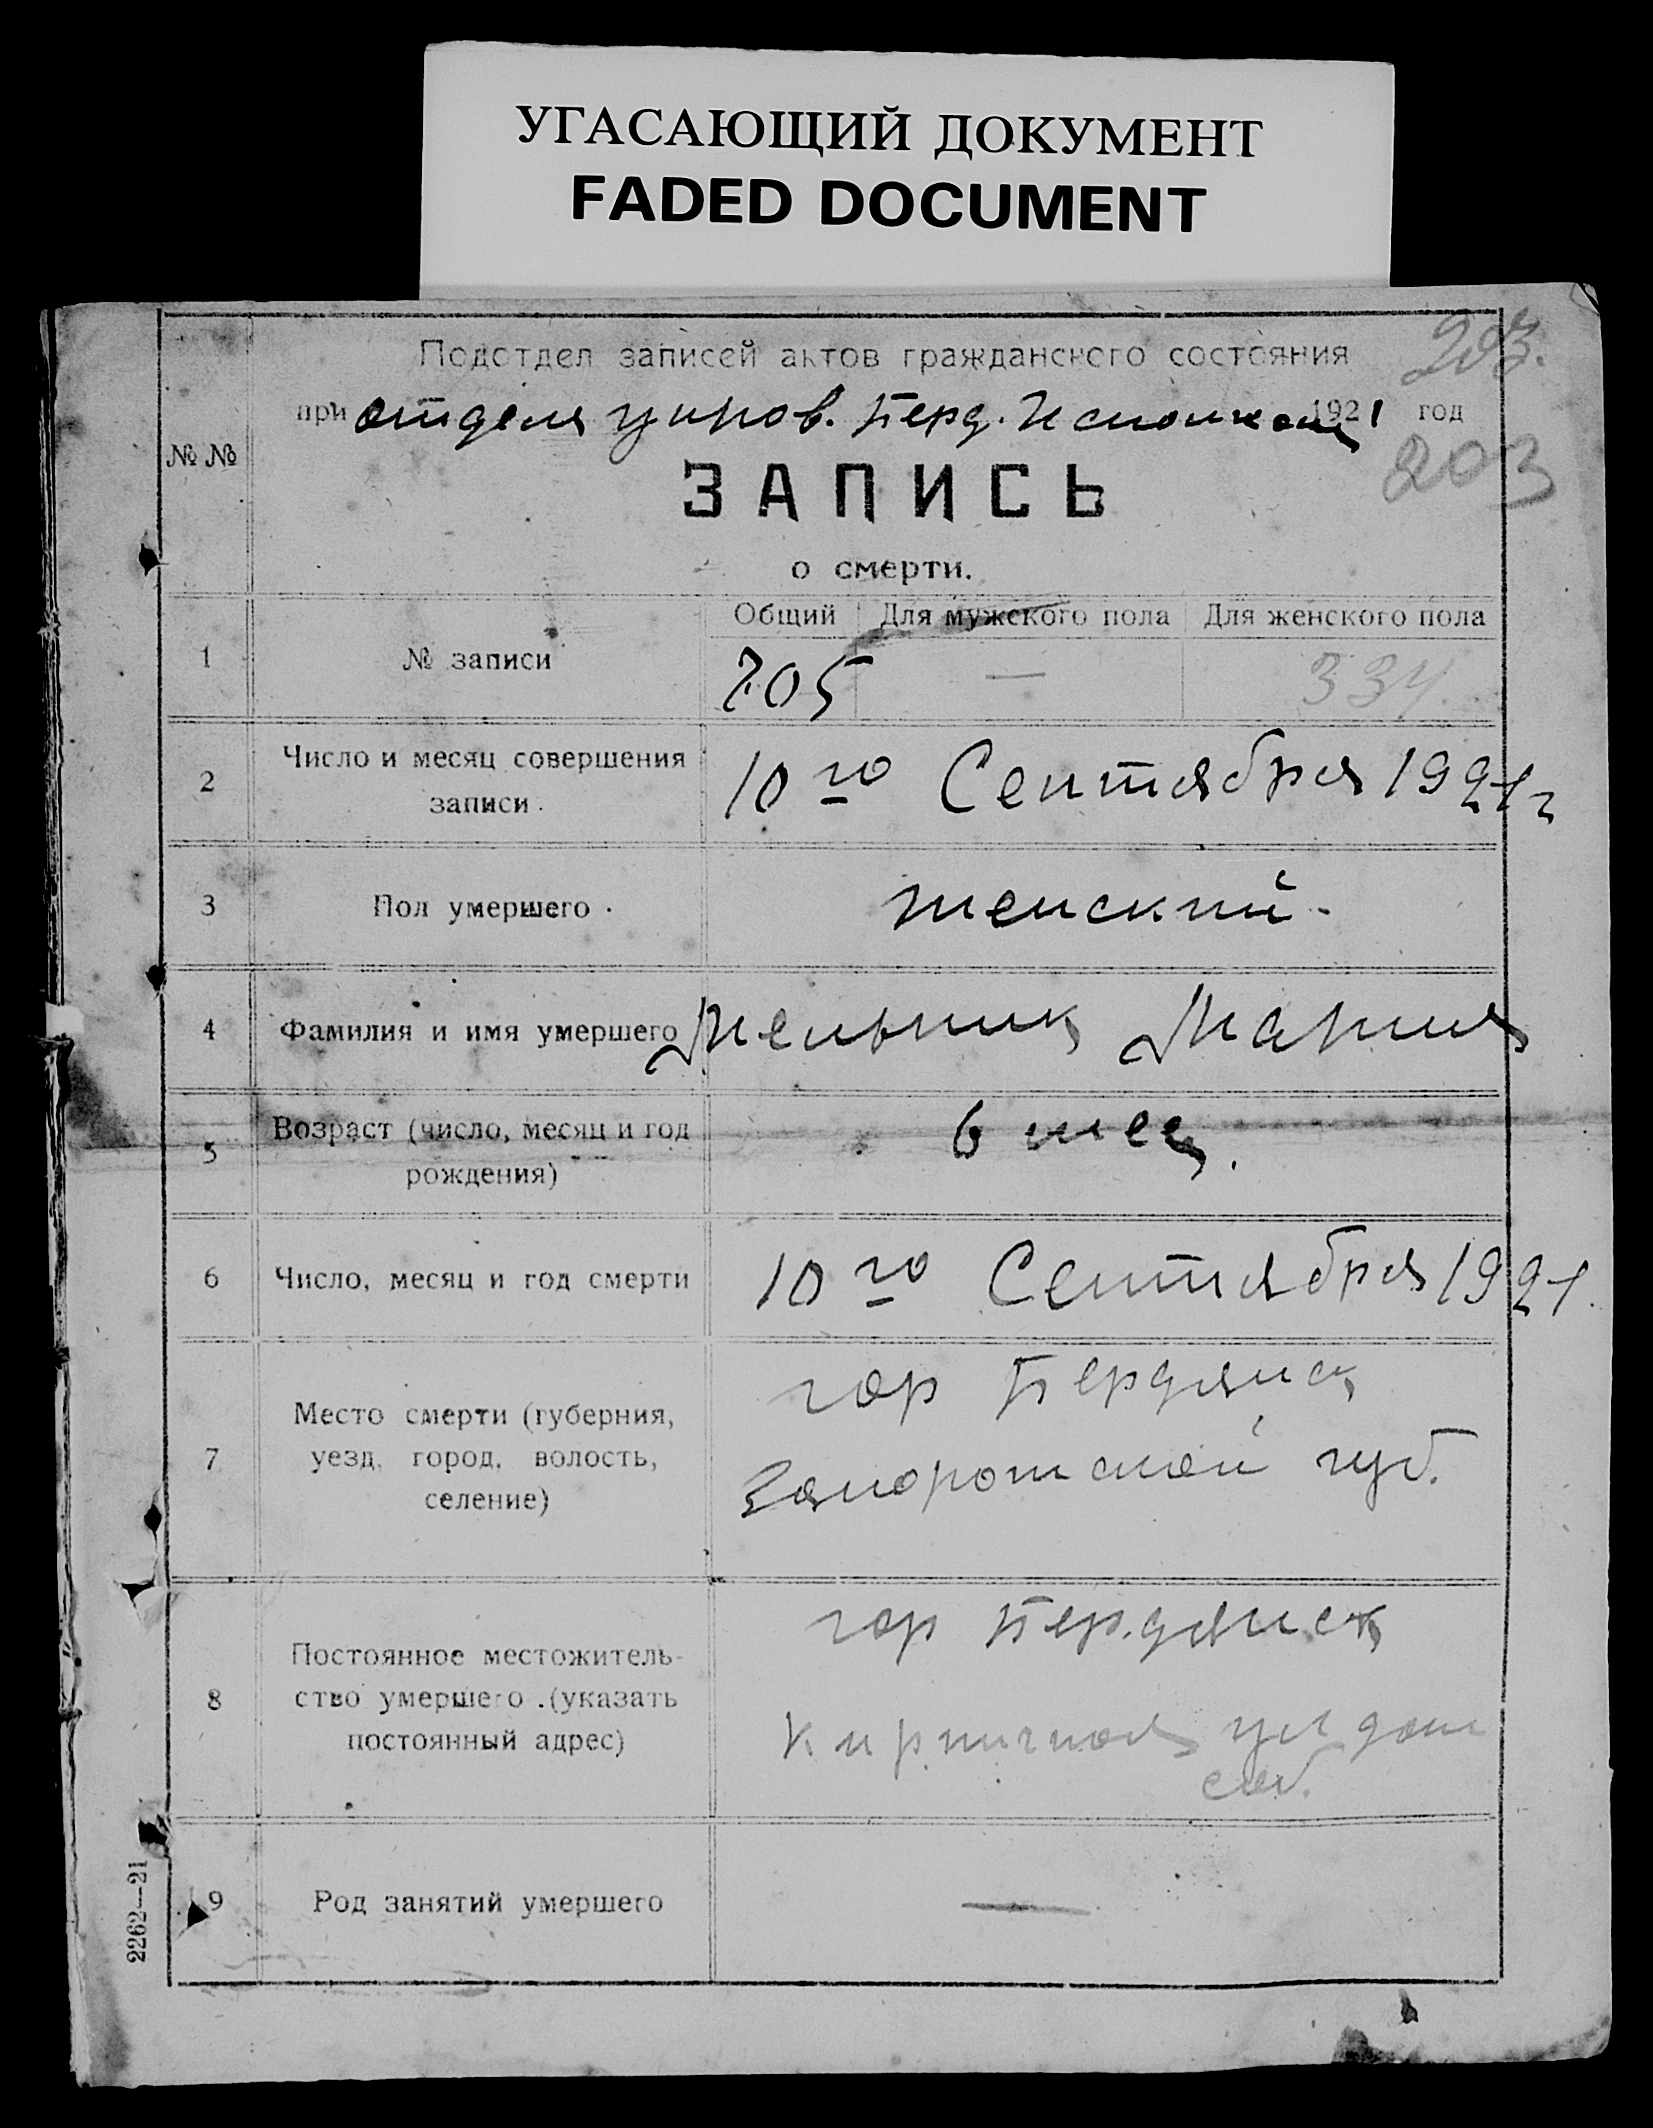 УГАСАЮЩИЙ ДОКУМЕНТ
FADED DOCUMENT
203.
Подотдел записей актов гражданского состояния
при отделе управ. Берд. Исполкома 1921 год
203
№ №
ЗАПИСЬ
о смерти.
Общий Для мужского пола Для женского пола
1 № записи 705 — 334.
2 Число и месяц совершения
записи
10 го Сентября 1921 г
3 Пол умершего женский.
4 Фамилия и имя умершего Мельник Мария
5 Возраст (число, месяц и год
рождения)
6 мес.
6 Число, месяц и год смерти 10 го Сентября 1921.
7 Место смерти (губерния,
уезд, город, волость,
селение)
гор Бердянск
Запорожской губ.
8 Постоянное местожитель-
ство умершего (указать
постоянный адрес)
гор Бердянск
Кирпичная ул дом
соб.
9 Род занятий умершего —
2262—21